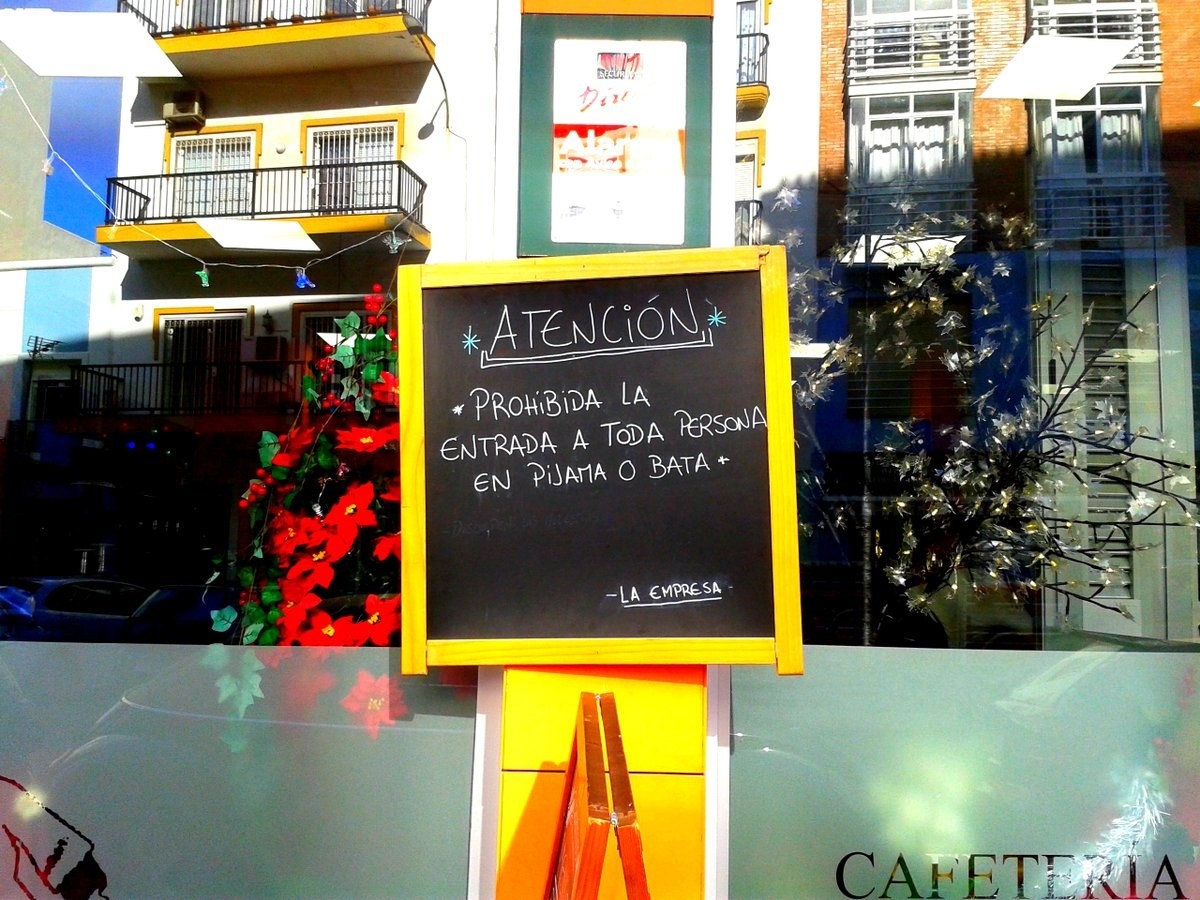 * ATENCIÓN *
* PROHIBIDA LA
ENTRADA A TODA PERSONA
EN PIJAMA O BATA *
- LA EMPRESA -
CAFETERÍA